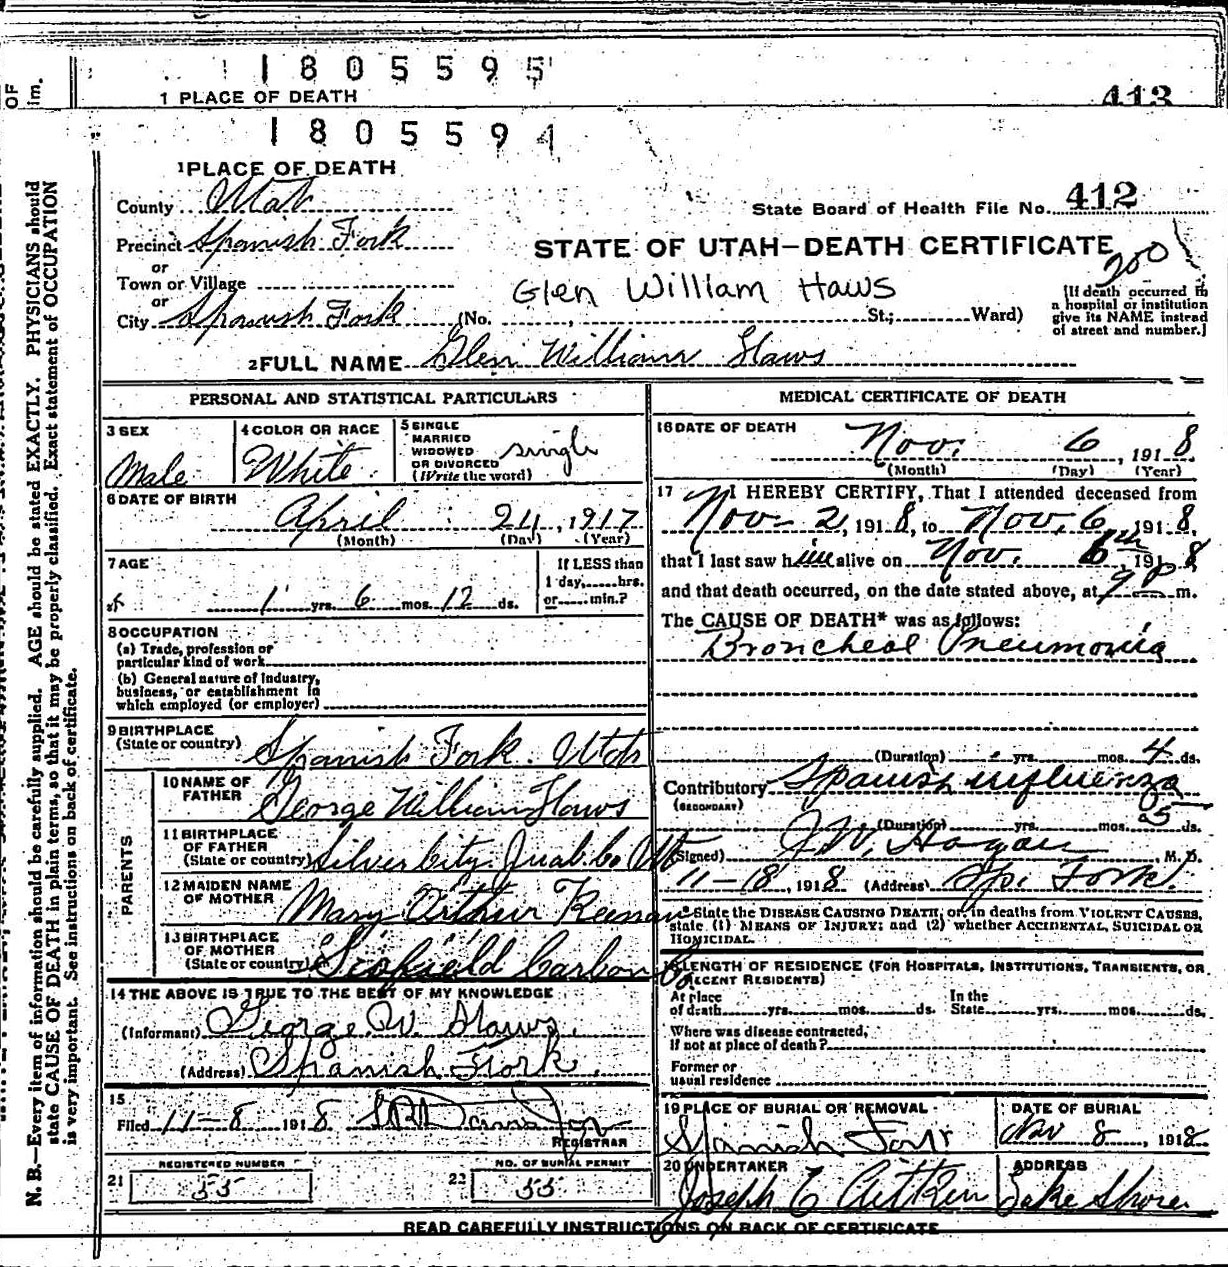 OF
im.
1805595
1 PLACE OF DEATH
413
1805594
1 PLACE OF DEATH
County Utah
State Board of Health File No. 412
Precinct Spanish Fork
STATE OF UTAH—DEATH CERTIFICATE
200
or
Town or Village
or
Glen William Haws
City Spanish Fork (No. St.; Ward)
[If death occurred in
a hospital or institution
give its NAME instead
of street and number.]
2 FULL NAME Glen William Haws
PERSONAL AND STATISTICAL PARTICULARS
3 SEX
Male
4 COLOR OR RACE
White
5 SINGLE
MARRIED
WIDOWED
OR DIVORCED
(Write the word)
single
6 DATE OF BIRTH
April 24, 1917
(Month) (Day) (Year)
7 AGE
1 yrs. 6 mos. 12 ds.
If LESS than
1 day, hrs.
or min.?
8 OCCUPATION
(a) Trade, profession or
particular kind of work
(b) General nature of industry,
business, or establishment in
which employed (or employer)
9 BIRTHPLACE
(State or country) Spanish Fork. Utah
PARENTS
10 NAME OF
FATHER George William Haws
11 BIRTHPLACE
OF FATHER
(State or country) Silver City. Juab Co Ut
12 MAIDEN NAME
OF MOTHER Mary Arthur Keenan
13 BIRTHPLACE
OF MOTHER
(State or country) Scofield Carbon Co
14 THE ABOVE IS TRUE TO THE BEST OF MY KNOWLEDGE
(Informant) George W. Haws.
(Address) Spanish Fork.
15
Filed 11-8 1918
REGISTRAR
REGISTERED NUMBER
21 55
NO. OF BURIAL PERMIT
22 55
MEDICAL CERTIFICATE OF DEATH
16 DATE OF DEATH
Nov. 6, 1918
(Month) (Day) (Year)
17 I HEREBY CERTIFY, That I attended deceased from
Nov - 2, 1918, to Nov. 6, 1918,
that I last saw him alive on Nov. 6th 1918
and that death occurred, on the date stated above, at 9 P m.
The CAUSE OF DEATH* was as follows:
Broncheal Pneumonia
(Duration) yrs. mos. 4 ds.
Contributory Spanish influenza
(SECONDARY)
(Duration) yrs. mos. 5 ds.
(Signed) J.W. Hagan, M. D.
11-18, 1918 (Address) Sp. Fork.
*State the DISEASE CAUSING DEATH, or, in deaths from VIOLENT CAUSES,
state (1) MEANS OF INJURY; and (2) whether ACCIDENTAL, SUICIDAL OR
HOMICIDAL.
LENGTH OF RESIDENCE (FOR HOSPITALS, INSTITUTIONS, TRANSIENTS, OR
RECENT RESIDENTS)
At place
of death yrs. mos. ds.
In the
State yrs. mos. ds.
Where was disease contracted,
If not at place of death?
Former or
usual residence
19 PLACE OF BURIAL OR REMOVAL
Spanish Fork
DATE OF BURIAL
Nov 8, 1918
20 UNDERTAKER
Joseph E Aitken
ADDRESS
Lake Shore
READ CAREFULLY INSTRUCTIONS ON BACK OF CERTIFICATE
N. B.—Every item of information should be carefully supplied. AGE should be stated EXACTLY. PHYSICIANS should
state CAUSE OF DEATH in plain terms, so that it may be properly classified. Exact statement of OCCUPATION
is very important. See instructions on back of certificate.